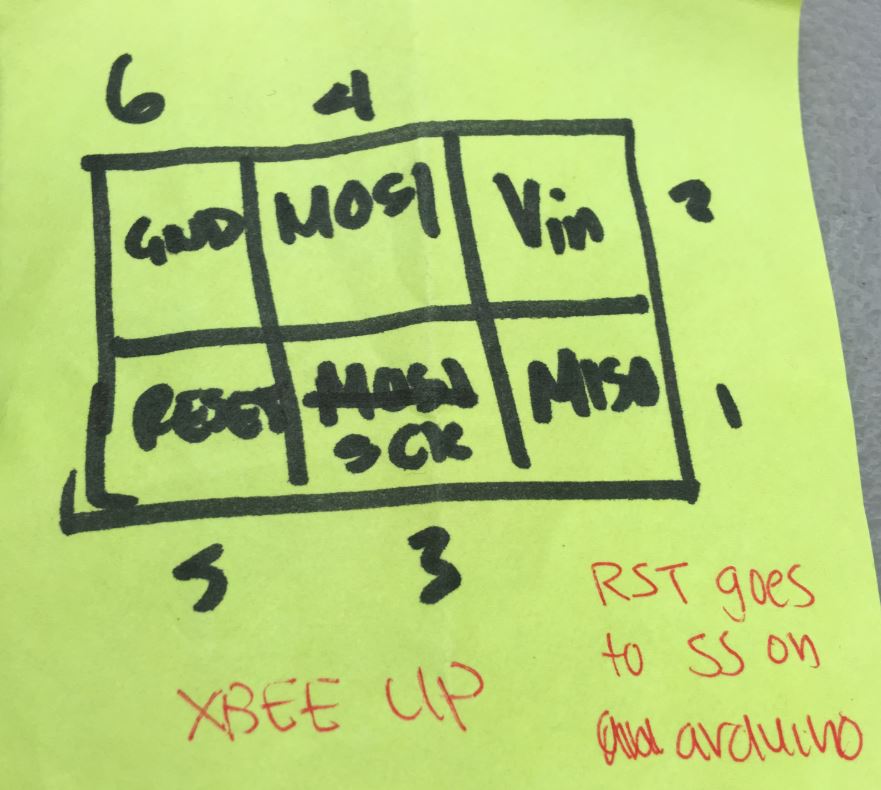 6 4
GND MOSI Vin 2
RESET MOSI MISO 1
SCK
5 3
RST goes
to SS on
XBEE UP
arduino